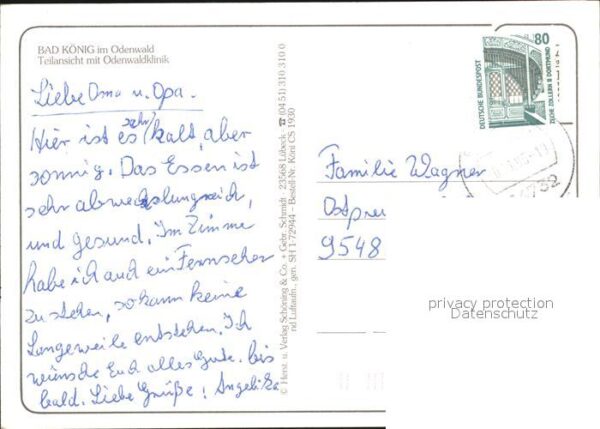 BAD KÖNIG im Odenwald
Teilansicht mit Odenwaldklinik
Liebe Oma u. Opa.
Hier ist es sehr kalt, aber
sonnig. Das Essen ist
sehr abwechslungsreich,
und gesund. Im Zimme
habe ich auch ein Fernseher
zu stehen, so kann keine
Langeweile entstehen. Ich
wünsche Euch alles Gute. bis
bald. Liebe Grüße! Angelika
© Herst. u. Verlag Schöning & Co. + Gebr. Schmidt · 23568 Lübeck · ☎ (04 51) 310 310 0
nd Luftaufn., gen. SH 1-72944 – Bestell-Nr. Köni CS 1930
80
DEUTSCHE BUNDESPOST
ZECHE ZOLLERN II DORTMUND
Familie Wagner
Ostpreu
9548
privacy protection
Datenschutz